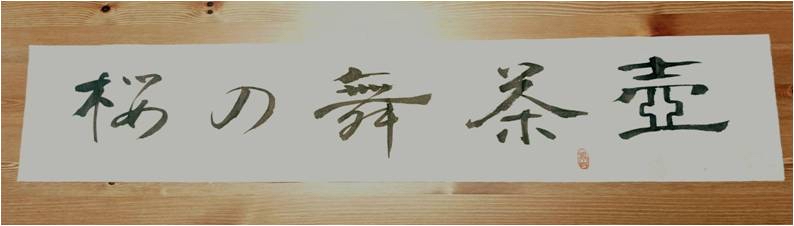 桜の舞茶壺